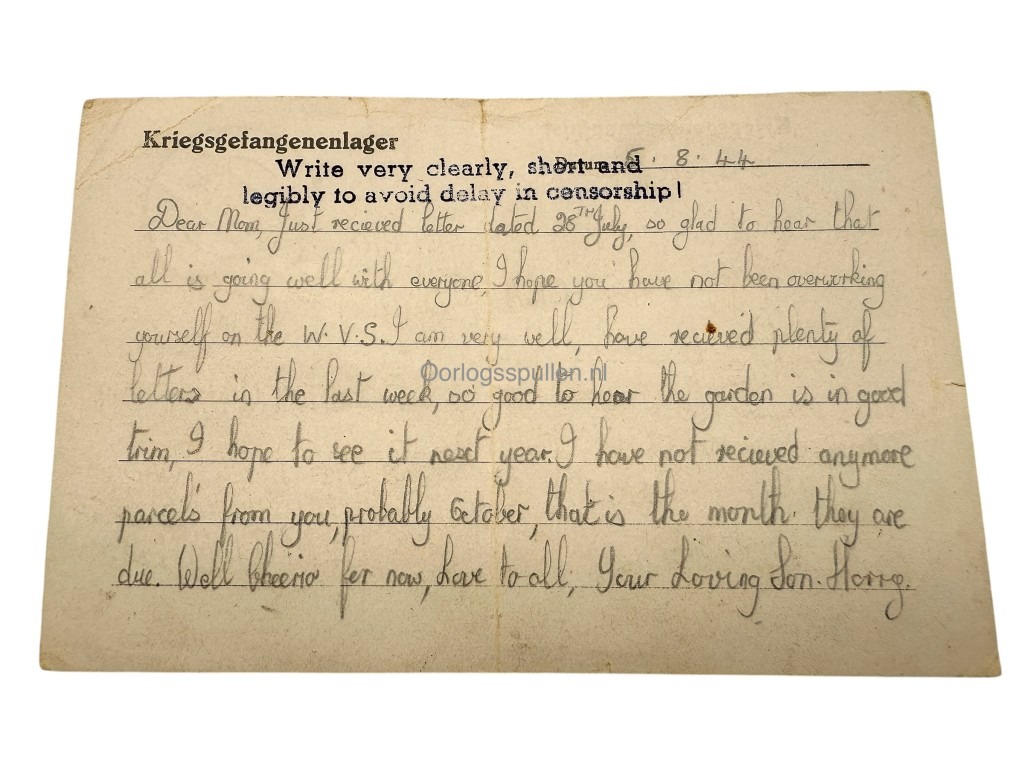 Kriegsgefangenenlager
Datum: 5. 8. 44
Write very clearly, short and
legibly to avoid delay in censorship!
Dear Mom, Just recieved letter dated 28TH July, so glad to hear that
all is going well with everyone, I hope you have not been overworking
yourself on the W.V.S. I am very well, have recieved plenty of
letters in the last week, so good to hear the garden is in good
Oorlogsspullen.nl
trim, I hope to see it next year. I have not recieved anymore
parcels from you, probably October, that is the month they are
due. Well Cheerio for now, Love to all, Your Loving Son. Harry.